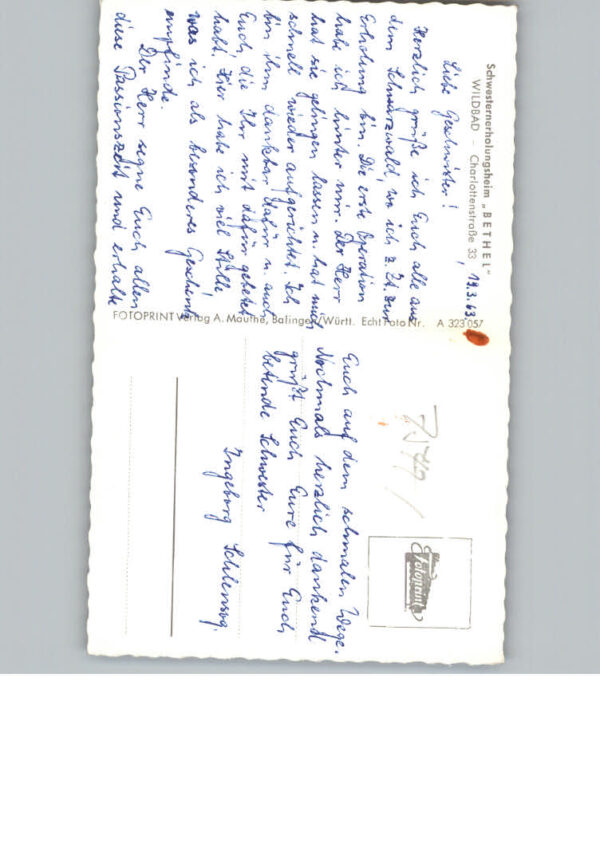 Schwesternerholungsheim „BETHEL"
WILDBAD - Charlottenstraße 33
19.3.63
Liebe Geschwister!
Herzlich grüße ich Euch alle aus
dem Schwarzwald, wo ich z. Zt. zur
Erholung bin. Die erste Operation
habe ich hinter mir. Der Herr
hat sie gelingen lassen u. hat mich
schnell wieder aufgerichtet. Ich
bin ihm dankbar dafür u. auch
Euch, die Ihr mit dafür gebetet
habt. Hier habe ich viel Stille,
was ich als besonderes Geschenk
empfinde.
Der Herr segne Euch allen
diese Passionszeit und erhalte
FOTOPRINT Verlag A. Mauthe, Balingen/Württ. Echt Foto Nr. A 323 057
Euch auf dem schmalen Wege.
Nochmals herzlich dankend
grüßt Euch Eure für Euch
betende Schwester
Ingeborg
Fotoprint